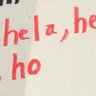 hela, he
, ho